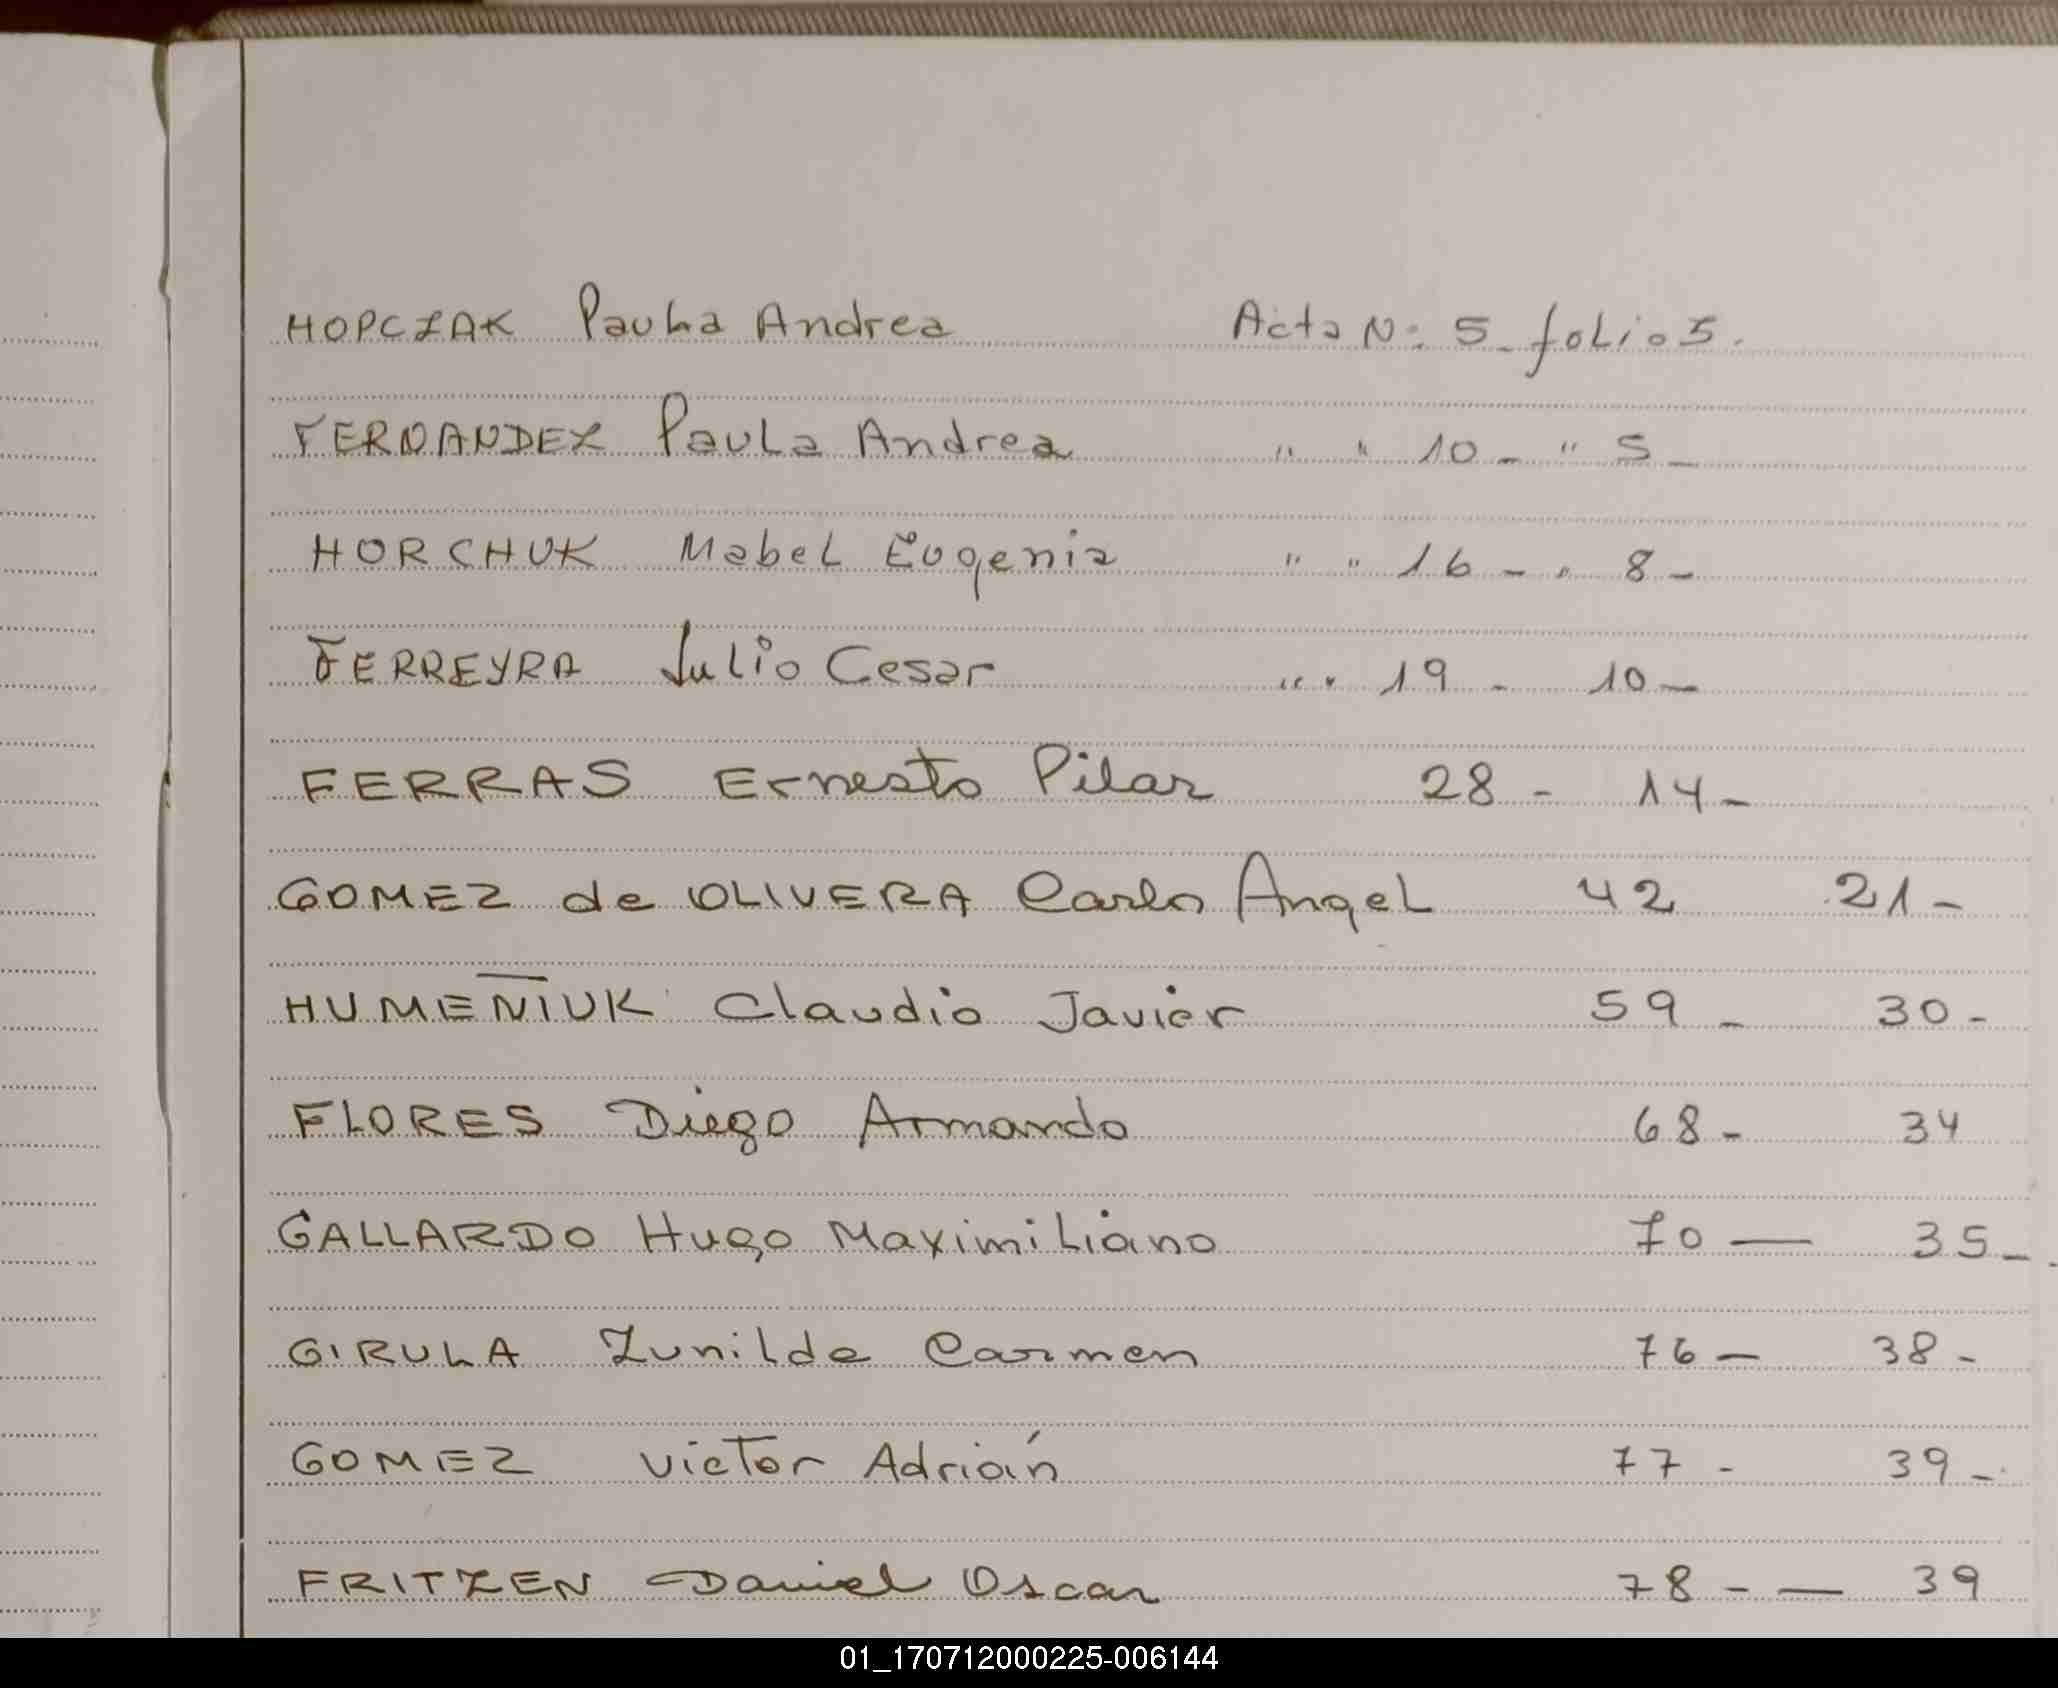 HOPCZAK Paula Andrea Acta N: 5 - folio 5.
FERNANDEZ Paula Andrea " " 10 - " 5 -
HORCHUK Mabel Eugenia " " 16 - " 8 -
FERREYRA Julio Cesar " " 19 - 10 -
FERRAS Ernesto Pilar 28 - 14 -
GOMEZ de OLIVERA Carlos Angel 42 21 -
HUMENIUK Claudio Javier 59 - 30 -
FLORES Diego Armando 68 - 34
GALLARDO Hugo Maximiliano 70 — 35 -
GIRULA Zunilda Carmen 76 - 38 -
GOMEZ Victor Adrián 77 - 39 -
FRITZEN Daniel Oscar 78 - — 39
01_170712000225-006144